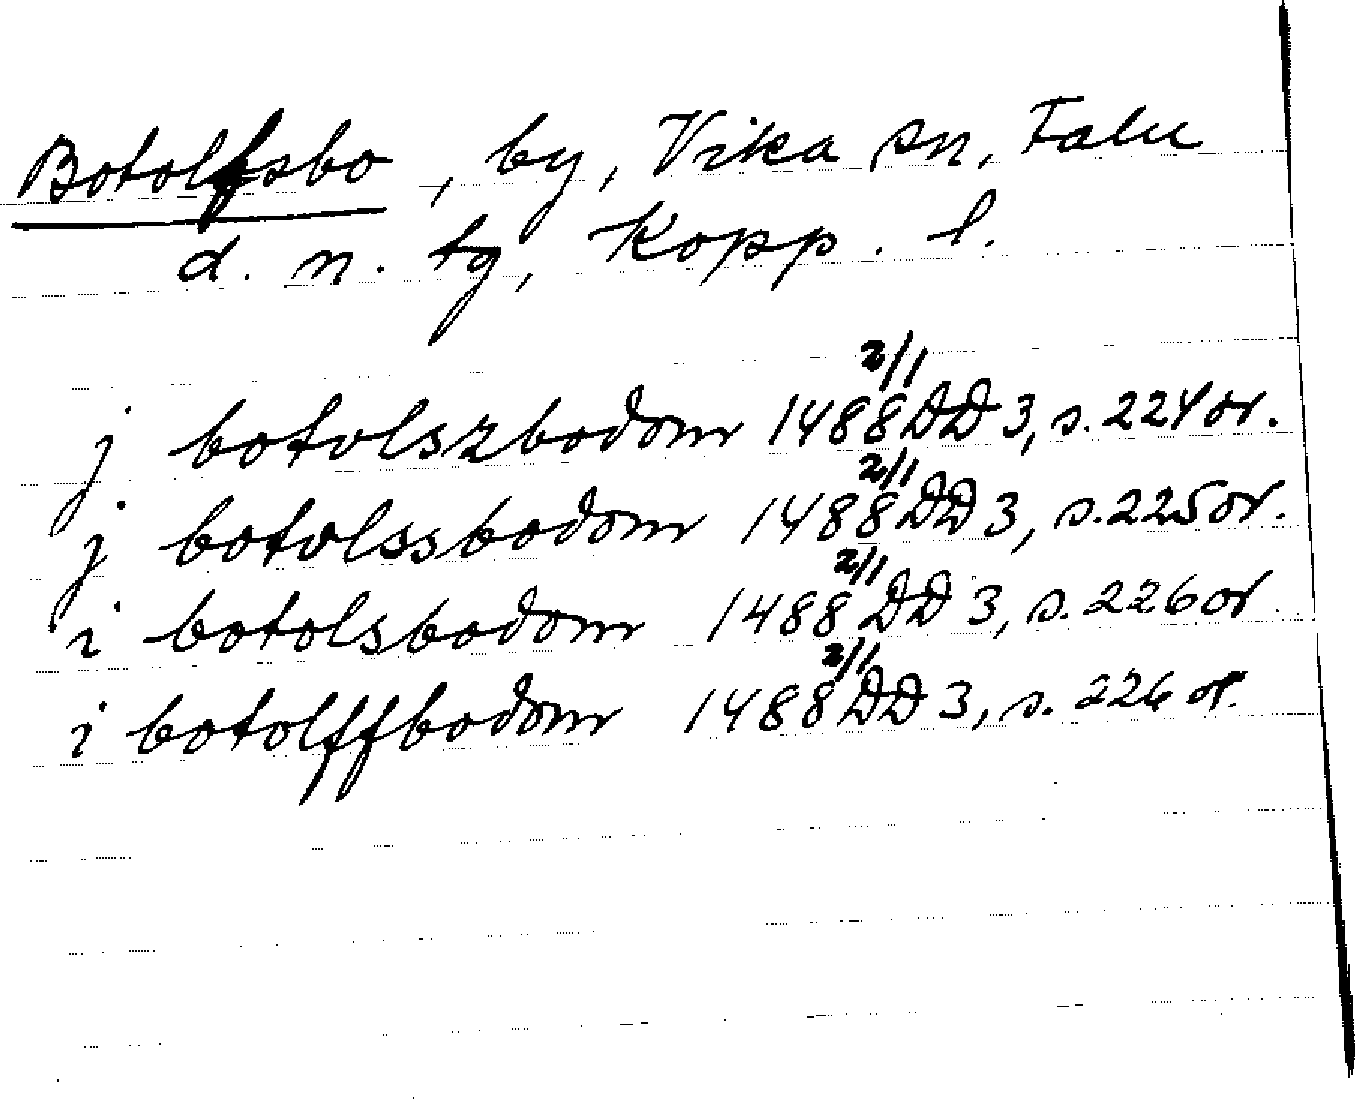 Botolfsbo, by, Vika sn, Falu
d. n. tg, Kopp. l.
j botolszbodom 1488 2/1 DD 3, s. 224 or.
j botolssbodom 1488 2/1 DD 3, s. 225 or.
i botolsbodom 1488 2/1 DD 3, s. 226 or
i botolffbodom 1488 2/1 DD 3, s. 226 or.